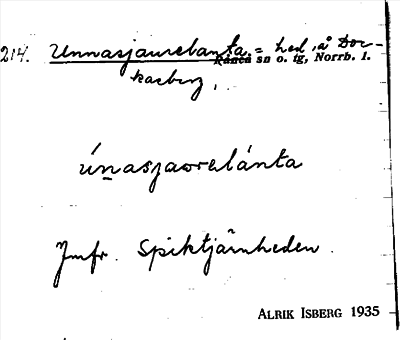 214. Unnasjaurelanta = hed å Dor-
Råneå sn o. tg, Norrb. l.
kasberg,
únasjaorelánta
Jmfr. Spiktjärnheden.
ALRIK ISBERG 1935